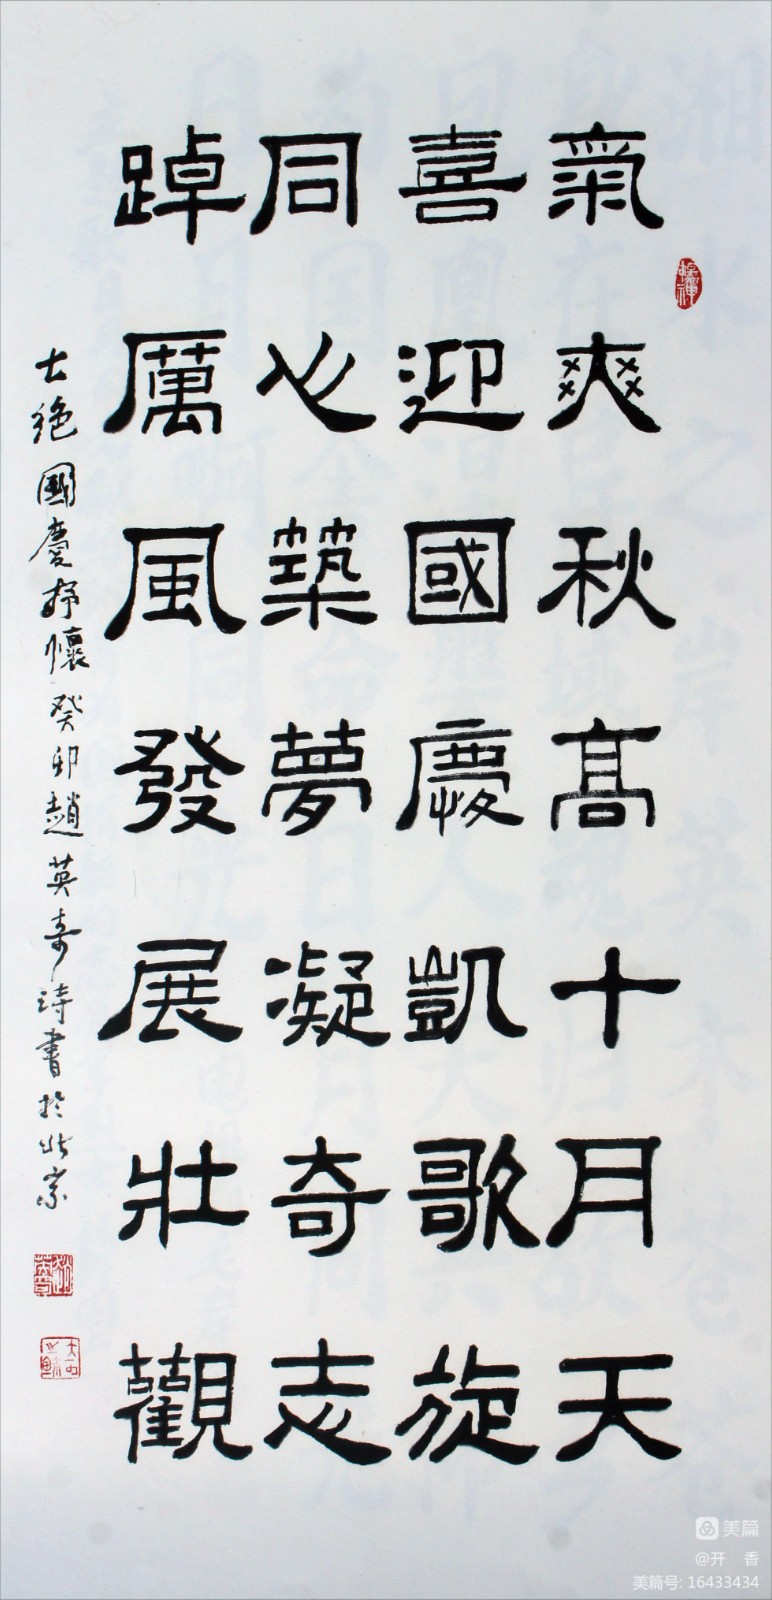 氣爽秋高十月天
喜迎國慶凱歌旋
同心築夢凝奇志
踔厲風發展壯觀
七絶國慶抒懷癸卯趙英奇詩書於北京
美篇
@开 香
美篇号: 16433434